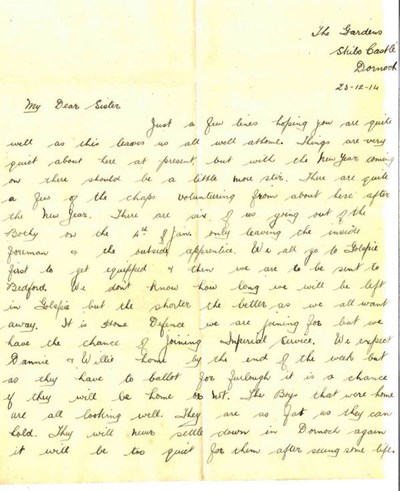 The Gardens
Skibo Castle
Dornoch
23-12-14
My Dear Sister
Just a few lines hoping you are quite
well as this leaves us all well at home. Things are very
quiet about here at present, but with the New Year coming
on there should be a little more stir. There are quite
a few of the chaps volunteering from about here after
the New Year. There are six of us going out of the
Bothy on the 4th of Jan. only leaving the inside
foreman & the outside apprentice. We all go to Golspie
first to get equipped & then we are to be sent to
Bedford. We dont know how long we will be left
in Golspie but the shorter the better as we all want
away. It is Home Defence we are joining for but we
have the chance of joining Imperial Service. We expect
Dannie & Willie home by the end of the week but
as they have to ballot for furlough it is a chance
if they will be home or not. The Boys that were home
are all looking well. They are as fat as they can
hold. They will never settle down in Dornoch again
it will be too quiet for them after seeing some life.